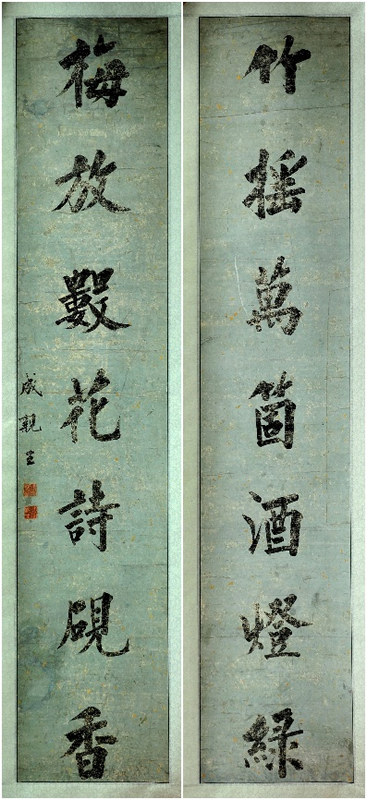 竹摇萬箇酒燈緑
梅放數花詩硯香
成親王